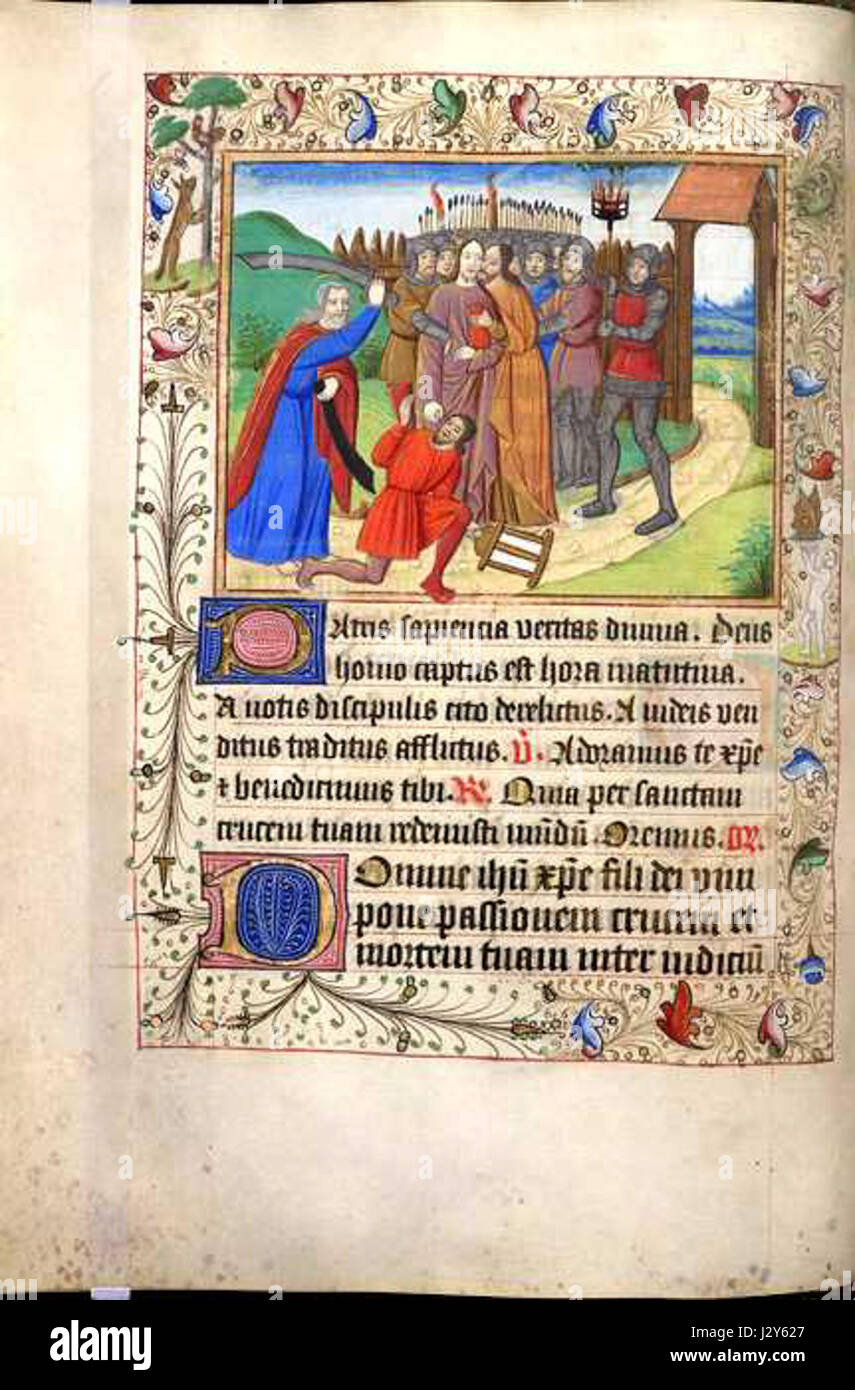 Patris sapiencia veritas divina. Deus
homo captus est hora matutina.
A notis discipulis cito derelictus. A iudeis ven
ditus traditus afflictus. V̄. Adoramus te xp̄e
⁊ benedicimus tibi. R̄. Quia per sanctam
crucem tuam redemisti mūdū. Oremus. or̄.
Domine ihū xp̄e fili dei vivi
pone passionem crucem et
mortem tuam inter iudiciū
alamy
alamy stock photo
J2Y627
www.alamy.com